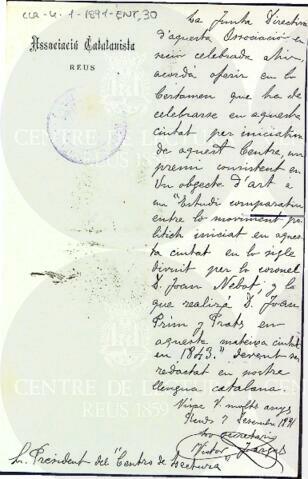 CLA-4.1-1891-ENT,30
Associació Catalanista
REUS
La Junta Directiva
d'aquesta Associació en
sesió celebrada ahir
acordá oferir en lo
Certamen que ha de
celebrarse en aquesta
ciutat per iniciativa
de aquest Centre, un
premi consistent en
Un objecte d'art a
un "Estudi comparatiu
entre lo moviment po-
litich iniciat en aques-
ta ciutat en lo sigle
divuit per lo coronel
D. Joan Nebot, y lo
que realizá D. Joan
Prim y Prats en
aquesta mateixa ciutat
en 1843." devent ser
redactat en nostra
llengua catalana.
Visca V. molts anys
Reus 7 Desembre 1891
Lo Secretari
Sr. President del "Centro de Lectura"
CENTRE DE LECTURA
REUS 1859